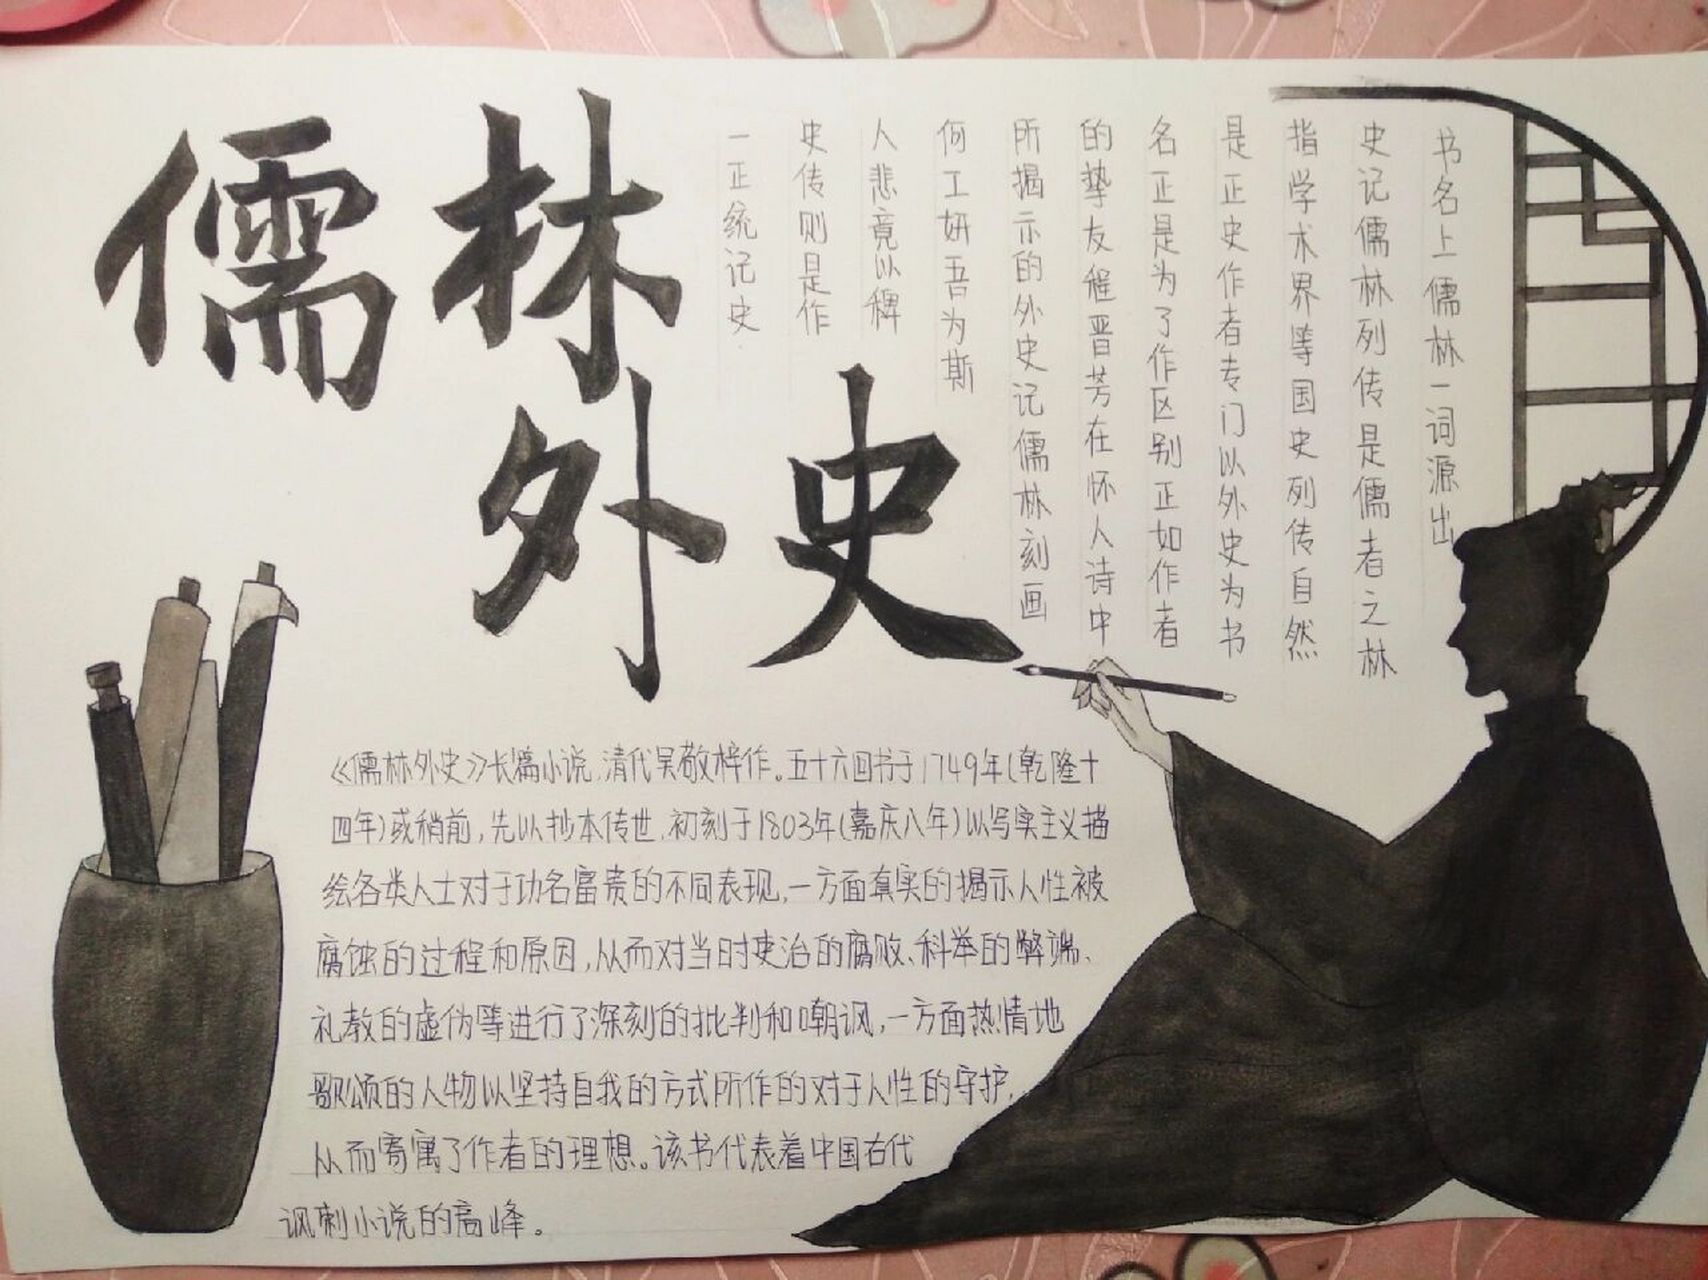 儒林
外史
书名上儒林一词源出
史记儒林列传是儒者之林
指学术界等国史列传自然
是正史作者专门以外史为书
名正是为了作区别正如作者
的挚友程晋芳在怀人诗中
所揭示的外史记儒林刻画
何工妍吾为斯
人悲竟以稗
史传则是作
一正统记史
《儒林外史》长篇小说,清代吴敬梓作。五十六回书于1749年(乾隆十
四年)或稍前,先以抄本传世,初刻于1803年(嘉庆八年)以写实主义描
绘各类人士对于功名富贵的不同表现,一方面真实的揭示人性被
腐蚀的过程和原因,从而对当时吏治的腐败、科举的弊端、
礼教的虚伪等进行了深刻的批判和嘲讽,一方面热情地
歌颂的人物以坚持自我的方式所作的对于人性的守护,
从而寄寓了作者的理想。该书代表着中国古代
讽刺小说的高峰。